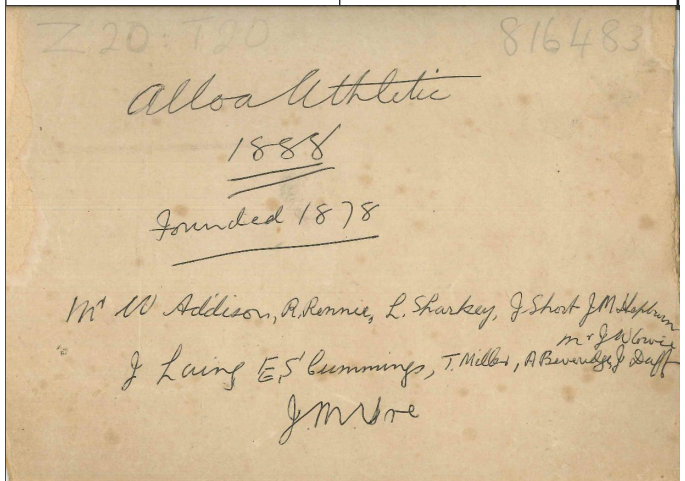 Z 20: T20 816483
Alloa Athletic
1888
Founded 1878
Mr W Addison, R. Rennie, L. Sharkey, J Short J M Hepburn
Mr J W Lowie
J Laing E, S Cummings, T. Miller, A Beveridge, J Duff
J. M.